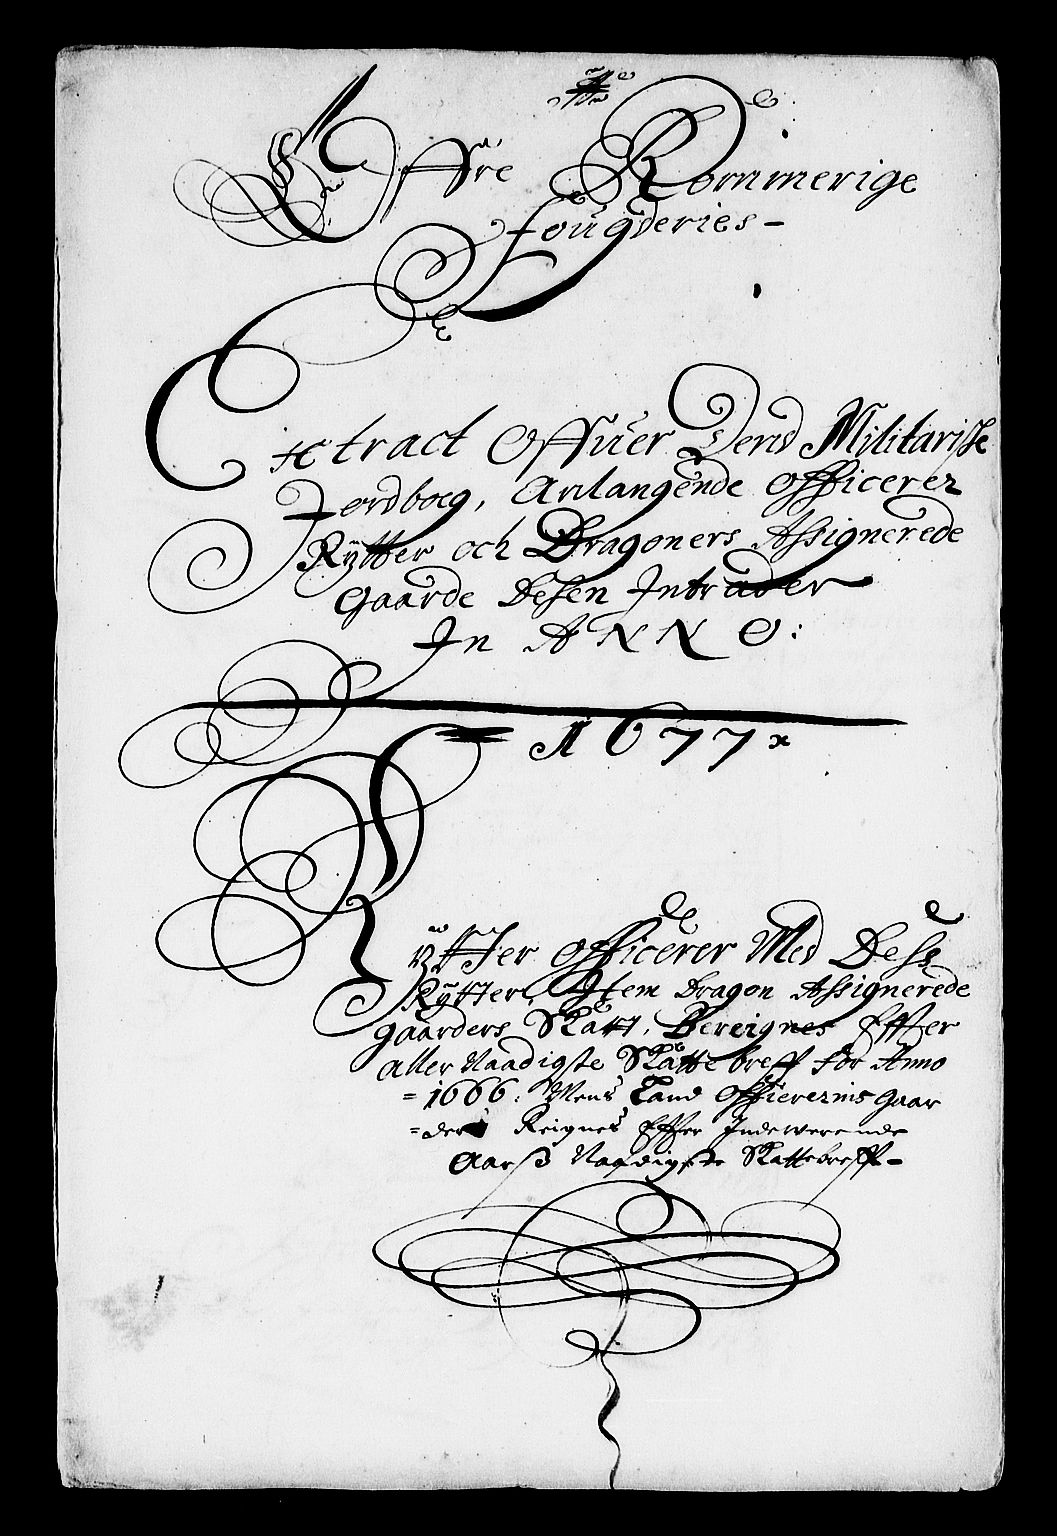 Öffre Rommerige
fougderies -
Extract Offuer Dend Militariske
Jordbog, Anlangende Officerer
Rÿtter och Dragoners Assignerede
Gaarde Desen Intrader
In ANNO:
1677
Rÿtter Officerer Med Dess
Rÿtter, Item Dragon Assignerede
gaarders Skatt, Bereignes Effter
aller Naadigste Skatte breff for Anno
= 1666: Mens Land Officerernis gaar
= ders Reignes Effter Indewerende
Aars Naadigste Skattebreff -